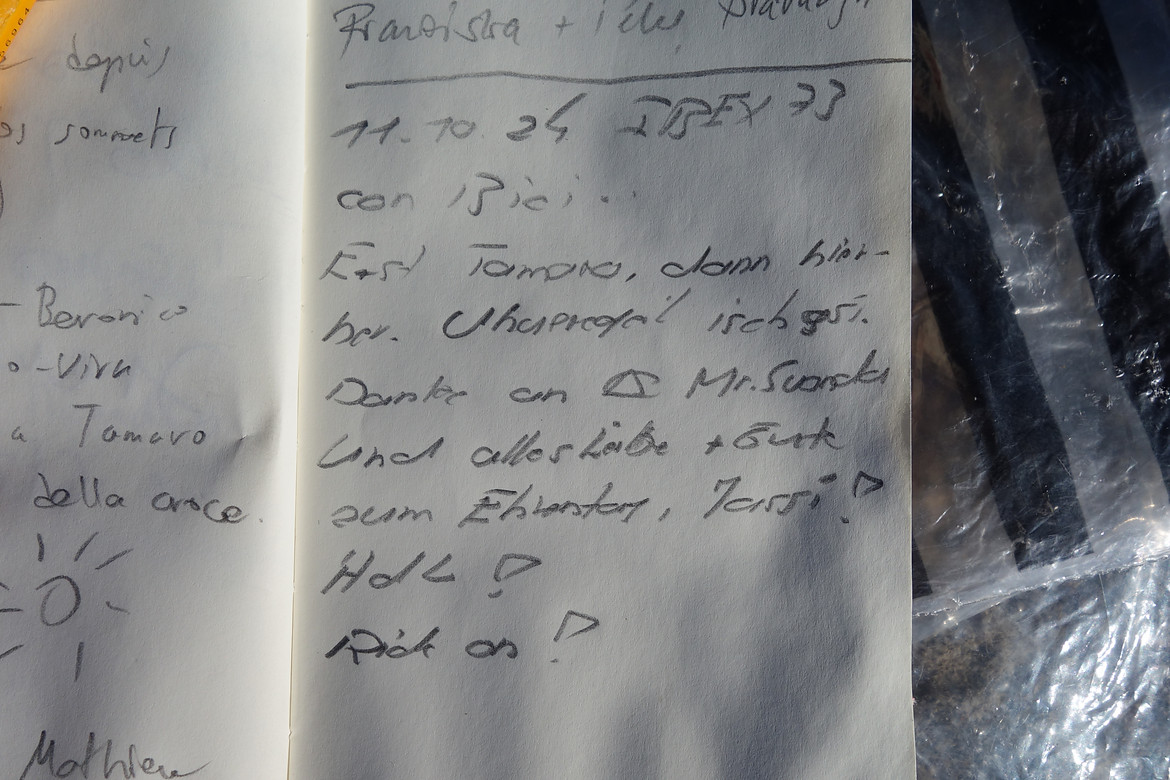 depuis
sommets
- Beronico
o-Vira
a Tamaro,
della croce.
Mathieu
Franziska +
11.10.24 IBEX 73
con Bici...
Erst Tamaro, dann hier-
her. isch gsi.
Danke an Mr.
und alles Liebe + Gute
zum Ehrentag, Jassi!
HdL!
Rick on!